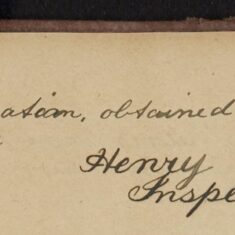 ation, obtained
Henry
Inspe